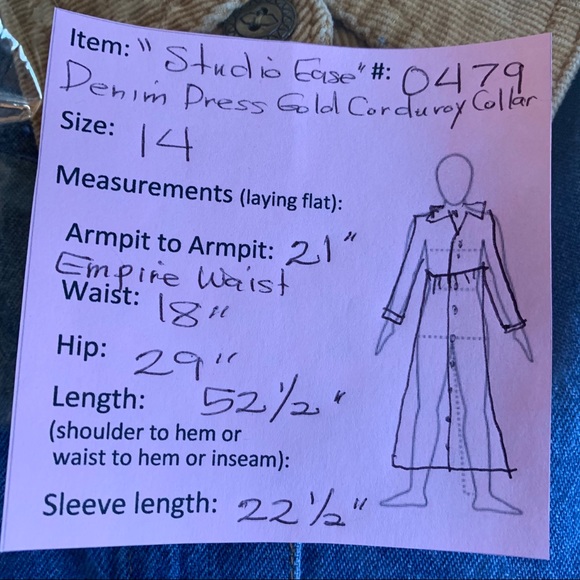 Item: "Studio Ease" #: 0479
Denim Dress Gold Corduroy Collar
Size: 14
Measurements (laying flat):
Armpit to Armpit: 21"
Empire Waist
Waist: 18"
Hip: 29"
Length: 52 1/2"
(shoulder to hem or
waist to hem or inseam):
Sleeve length: 22 1/2"